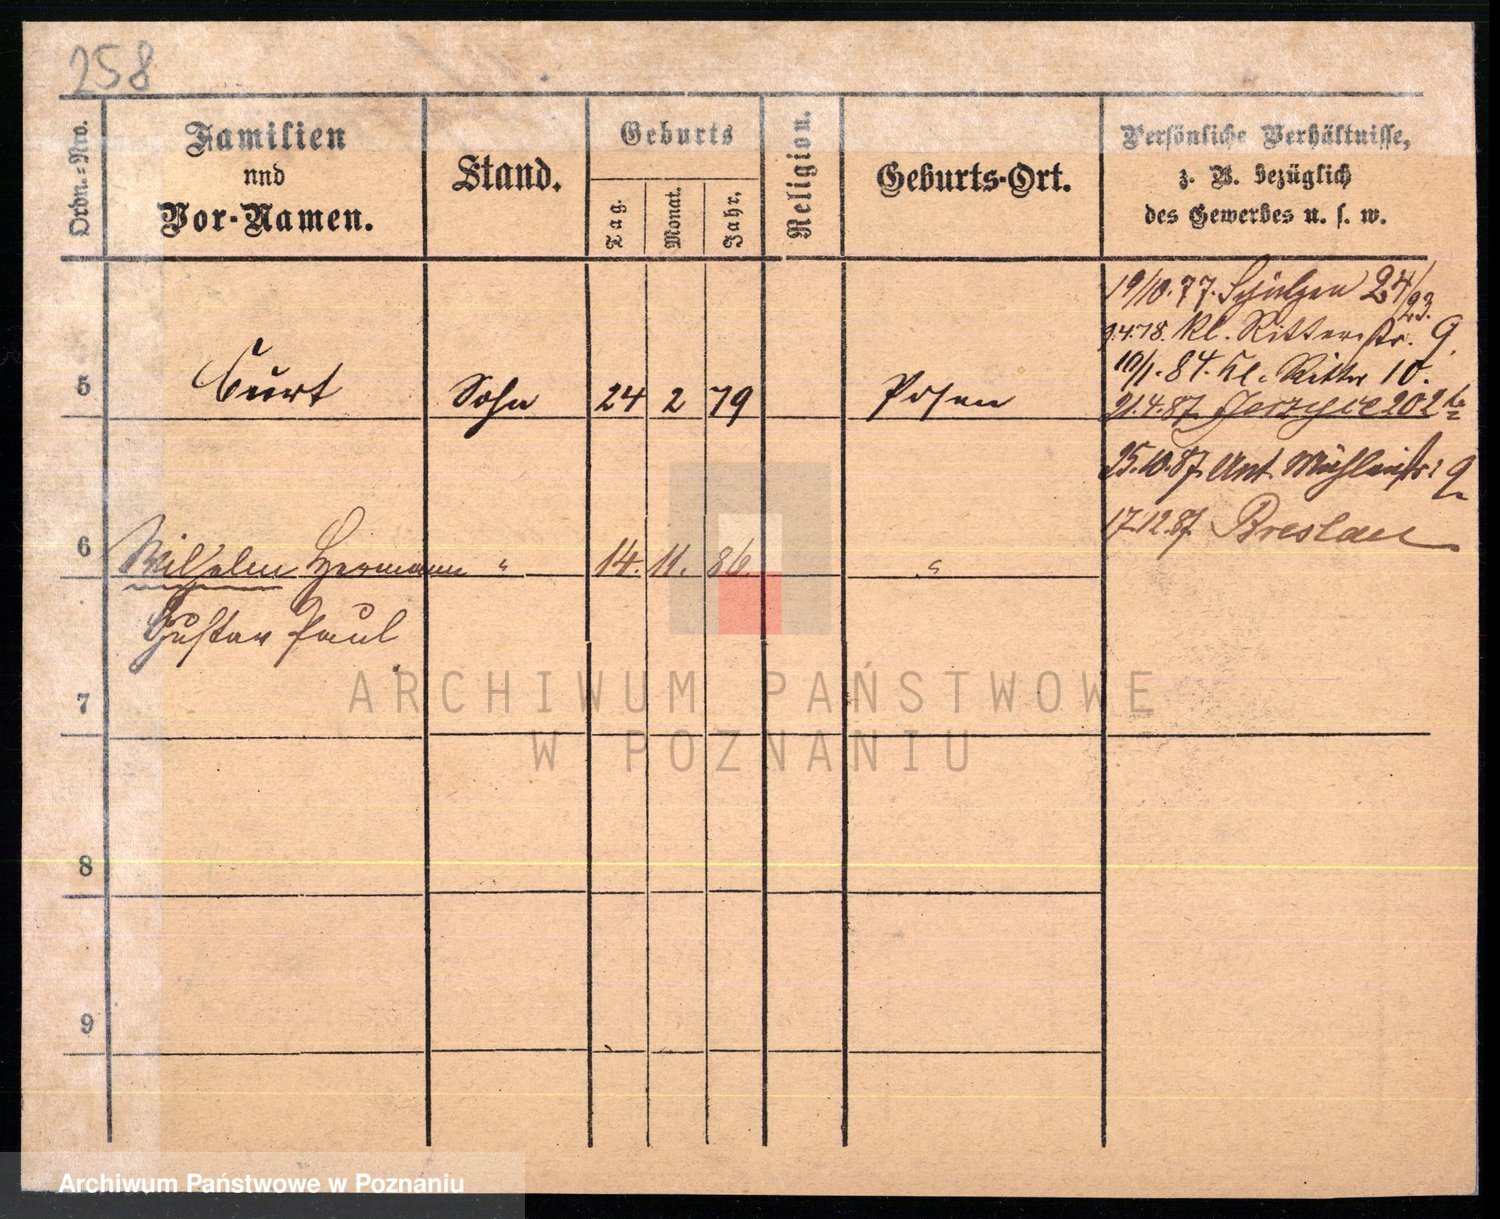 258
Ordn.=Nro.
Familien
und
Vor-Namen.
Stand.
Geburts
Tag.
Monat.
Jahr.
Religion.
Geburts-Ort.
Persönliche Verhältnisse,
z. B. bezüglich
des Gewerbes u. s. w.
19/10.77. Schützen 24/23.
9.4.78. Kl. Ritterstr. 9.
10/1.84. Kl. Ritter 10.
5 Curt Sohn 24 2 79 Posen
21.4.87. Jerzyce 202
25.10.87. Unt. Mühlenstr: 9
17.12.87. Breslau
6 Wilhelm Hermann " 14. 11. 86. "
Gustav Paul
7
8
9
ARCHIWUM PAŃSTWOWE
W POZNANIU
Archiwum Państwowe w Poznaniu